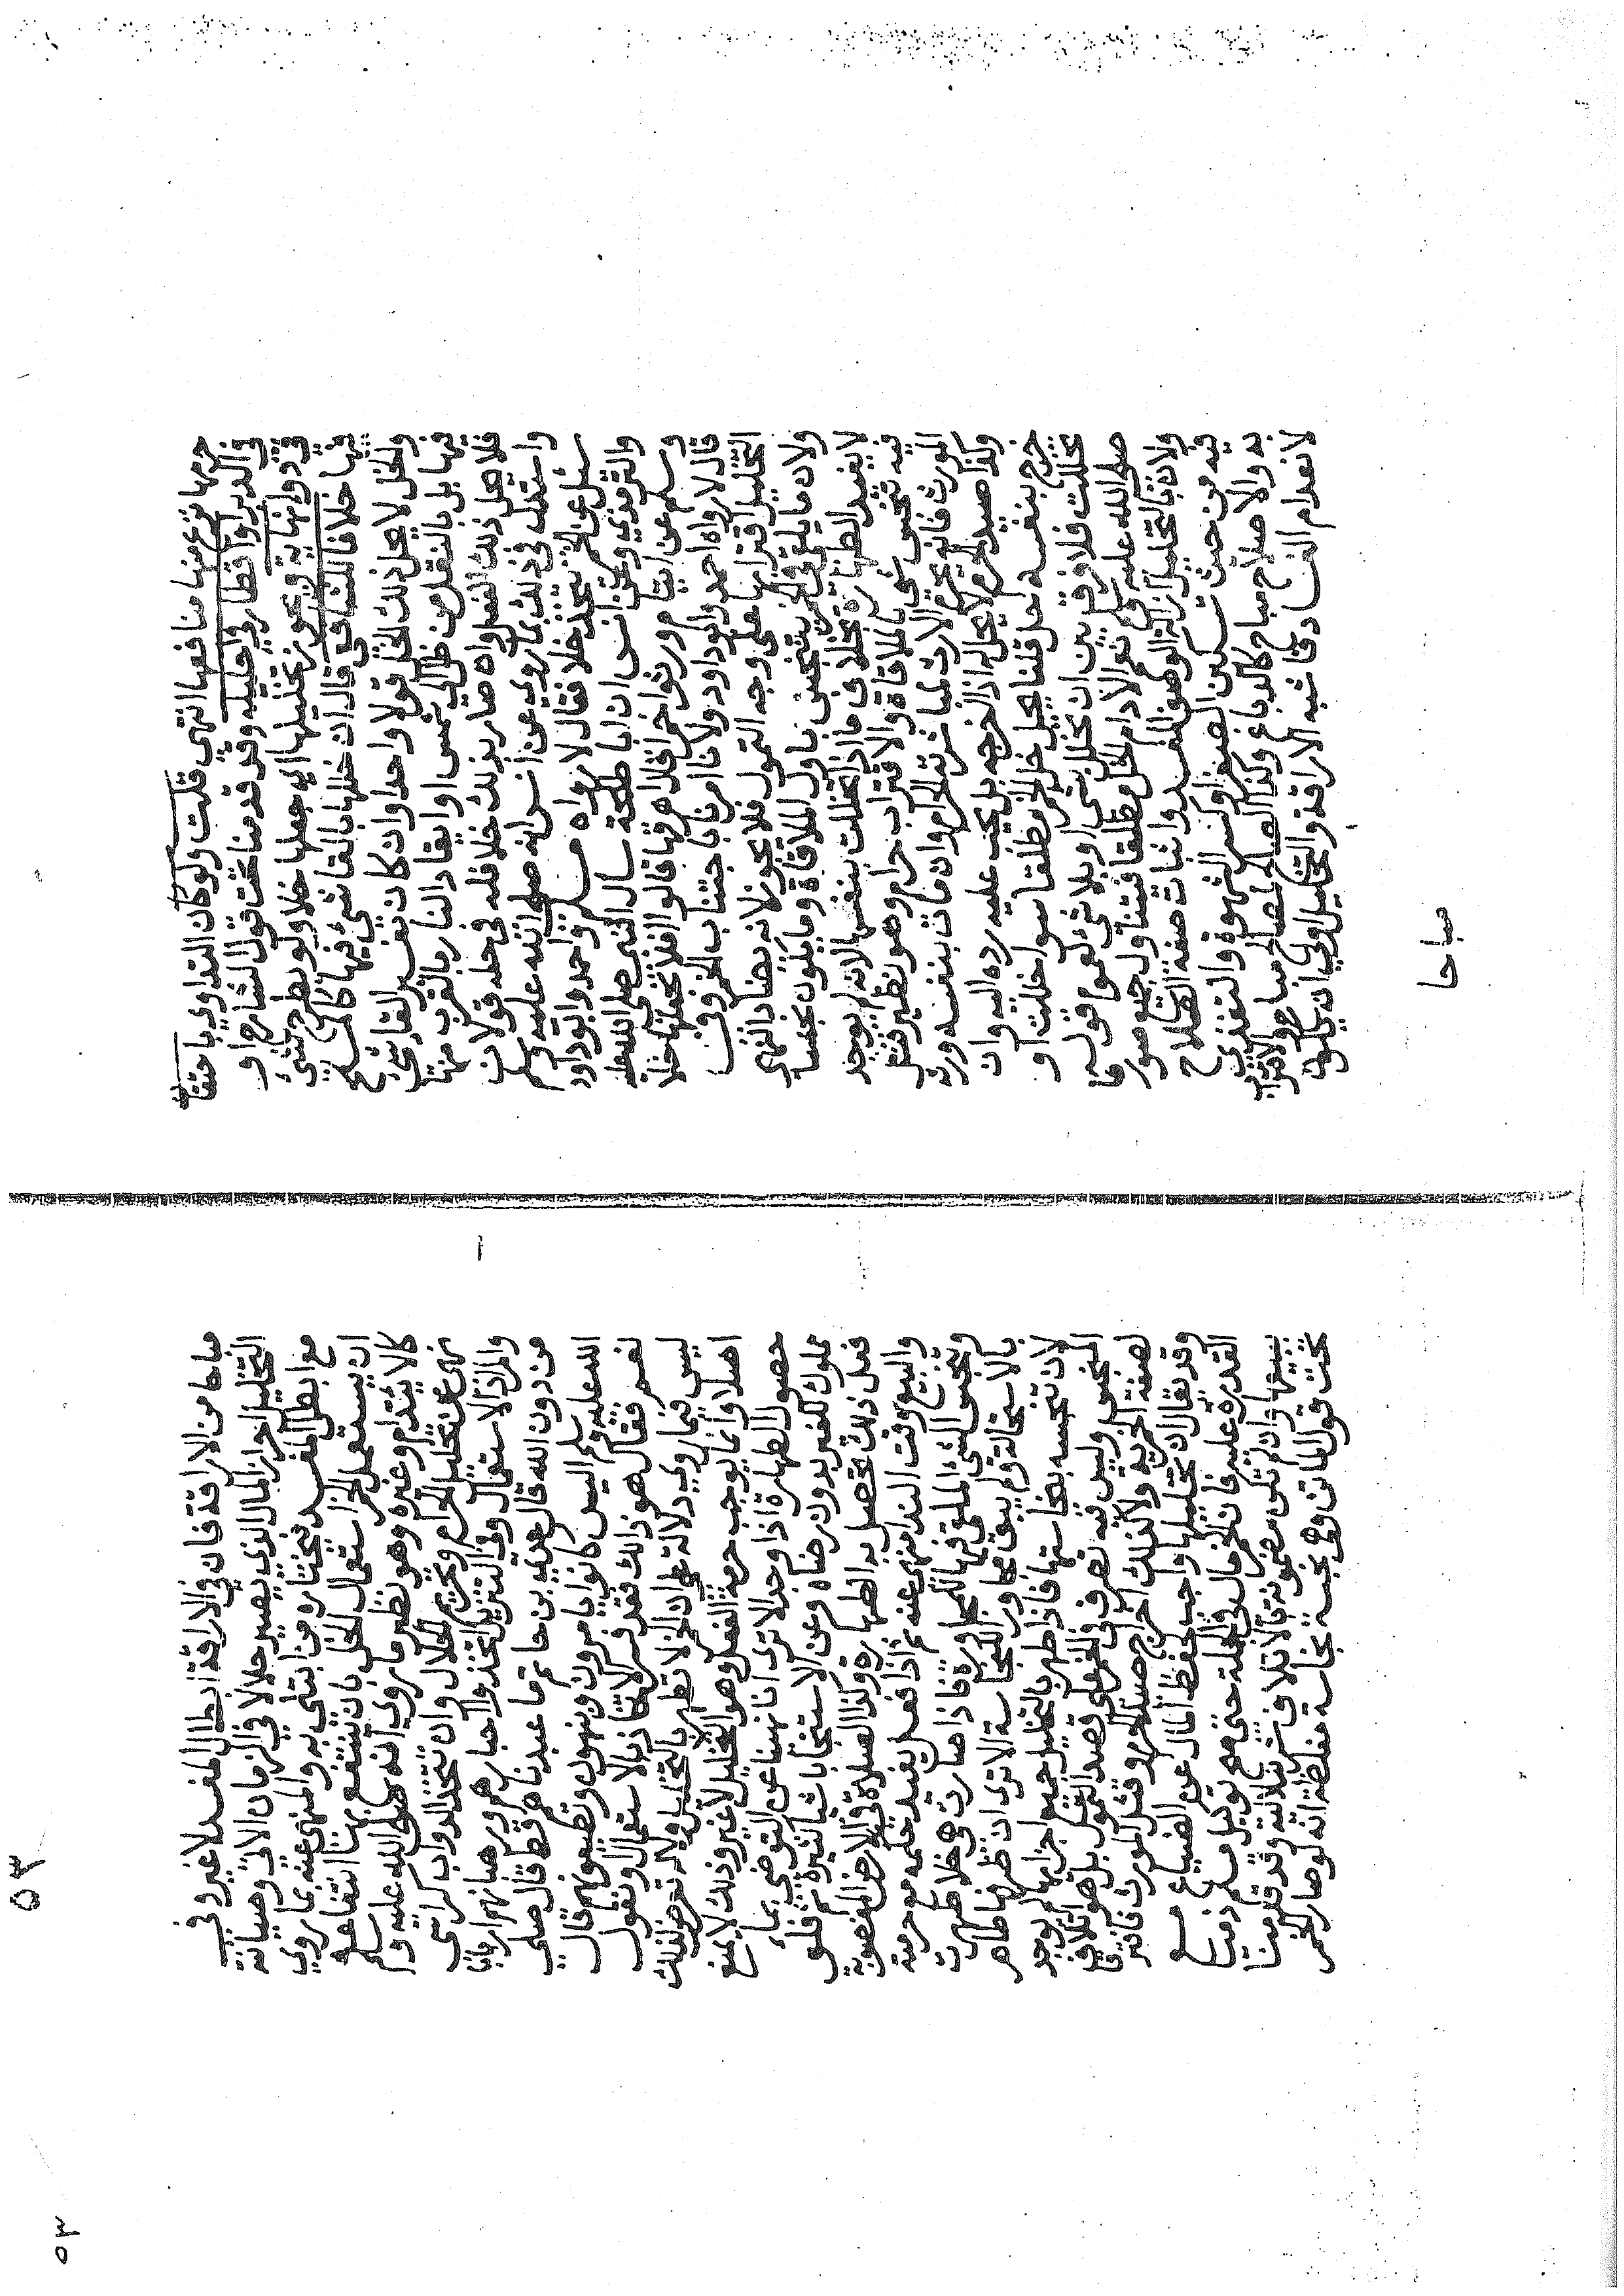 حرمها نزع منها منافعها انتهى قلت ولو كان التداوي باحتقان
في الدبر او اقطار في احليله وقد قدمنا تحت قول الشارح او
في دواء نهاية ويجوز تخليلها اي جعلها خلا ولو بطرح شيء
فيها خلافا للشافعي قال ان خللها بالقاء شيء فيها كالملح
والخل لا يحل ذلك الخل قولا واحدا وان كان بغير القاء شيء
فيها بل بالنقل من ظل الى شمس او ايقاد النار بالقرب منها
فلا يحل ذلك الفعل وان صار بذلك خلا فله في حله قولان
واستدل في ذلك بما روي عن انس انه صلى الله عليه وسلم
سئل عن الخمر يتخذ خلا فقال لا رواه مسلم واحمد وابو داود
والترمذي وعن انس ان ابا طلحة سال النبي صلى الله عليه
وسلم عن ايتام ورثوا خمرا قال اهرقها قالوا افلا نجعلها خلا
قال لا رواه احمد وابو داود ولانا امرنا باجتناب الخمر وفي
التخليل اقترابها على وجه التمول فلا يجوز لانه يضاد النهي
ولان ما يلقى في الخمر يتنجس باول الملاقاة وما يكون نجسا
لا يفيد الطهارة بخلاف ما اذا تخللت بنفسها لانه لم يوجد
فيه تنجس شيء بالملاقاة والاقتراب حرام وهو نظير قتل
المورث فانه يحرم الارث لمباشرته المحرم وان مات بنفسه ورث
وكذا صيد الحرم لا يحل له اذا اخرجه بل يجب عليه رده اليه وان
خرج بنفسه حل قلنا يحل خل الخمر مطلقا سواء خللت او
تخللت فلا فرق بين ان تخلل بشيء او بلا شيء لعموم قوله
صلى الله عليه وسلم نعم الادام الخل مطلقا فيتناول جميع صورها
ولان بالتخليل ازالة الوصف المفسد واثبات صفة الصلاح
فيه من حيث تسكين الصفراء وكسر الشهوة والتغذي
به والاصلاح مباح كالدباغ وكذا الصالح لمصالح مباح والاقتراب
لانعدام الفساد فاشبه الاراقة والتخليل اولى انه يكون
مباحا
٥٣
مباحا من الاراقة فان في الاراقة ابطال المفسد لا غير وفي
التخليل احراز المال الذي يصير حلالا في الزمان الآتي وصيانة
مع ابطال المفسد فيختاره من ابتلي به والمنهي عنه بما روي
ان يستعمل الخمر استعمال الخل بان ينتفع بها انتفاعه
كالائتدام وغيره وهو نظير ما روي انه صلى الله عليه وسلم
نهى عن تحليل الحرام وتحريم الحلال وان تتخذ الدواب كراسي
والمراد الاستعمال وفي التنزيل اتخذوا احبارهم ورهبانهم اربابا
من دون الله قال عدي بن حاتم ما عبدناهم قط قال صلى
الله عليه وسلم اليس كانوا يامرون وينهون وتطيعونهم قال
نعم فقال هو ذاك فقد فسر الاتخاذ بالاستعمال ونقول
ليس فيما روي دلالة على ان الخمر لا تطهر بالتخليل ولا له تعرض لذلك
اصلا وانما يوجب حرمة الفعل وهو التخليل لا غير وذلك لا يمنع
حصول الطهارة اذا وجد الا ترى انا نهينا عن التوضي بماء
مملوك للغير بدون رضاه وعن الاستنجاء باشياء كثيرة ثم فلو
فعل ذلك تحصل به الطهارة وكذا الصلاة في الارض المغصوبة
والبيع وقت النداء منهي عنه ثم اذا فعل يفيد حكمه مع حرمته
وتنجس الشيء الملقى فيها للمجاورة فاذا صارت هي خلا طهرت
بالاستحالة ولم يبق مجاور النجاسة الا ترى ان ظرفها طاهر
لان تنجسه بنجاستها فاذا طهر بالتخليل جميع اجزائها لم يوجد
المنجس وليس فيه تصرف في الخمر على قصد التمول بل هو اتلاف
لصفة الخمرية ولا كذلك اخراج صيد الحرم وقتل المورث فافترقا
وقد يقال ان تخليلها واجب لحفظ المال عن الضياع مع
القدرة عليه فان الخمر مال في الجملة حتى صح توكيل مسلم ذميا
ببيعها وان لم تكن مضمونة بالاتلاف شرنبلالية وقد قدمنا
تحت قول الماتن وهي نجسة نجاسة مغلظة انه لو صار الخمر
٥٣